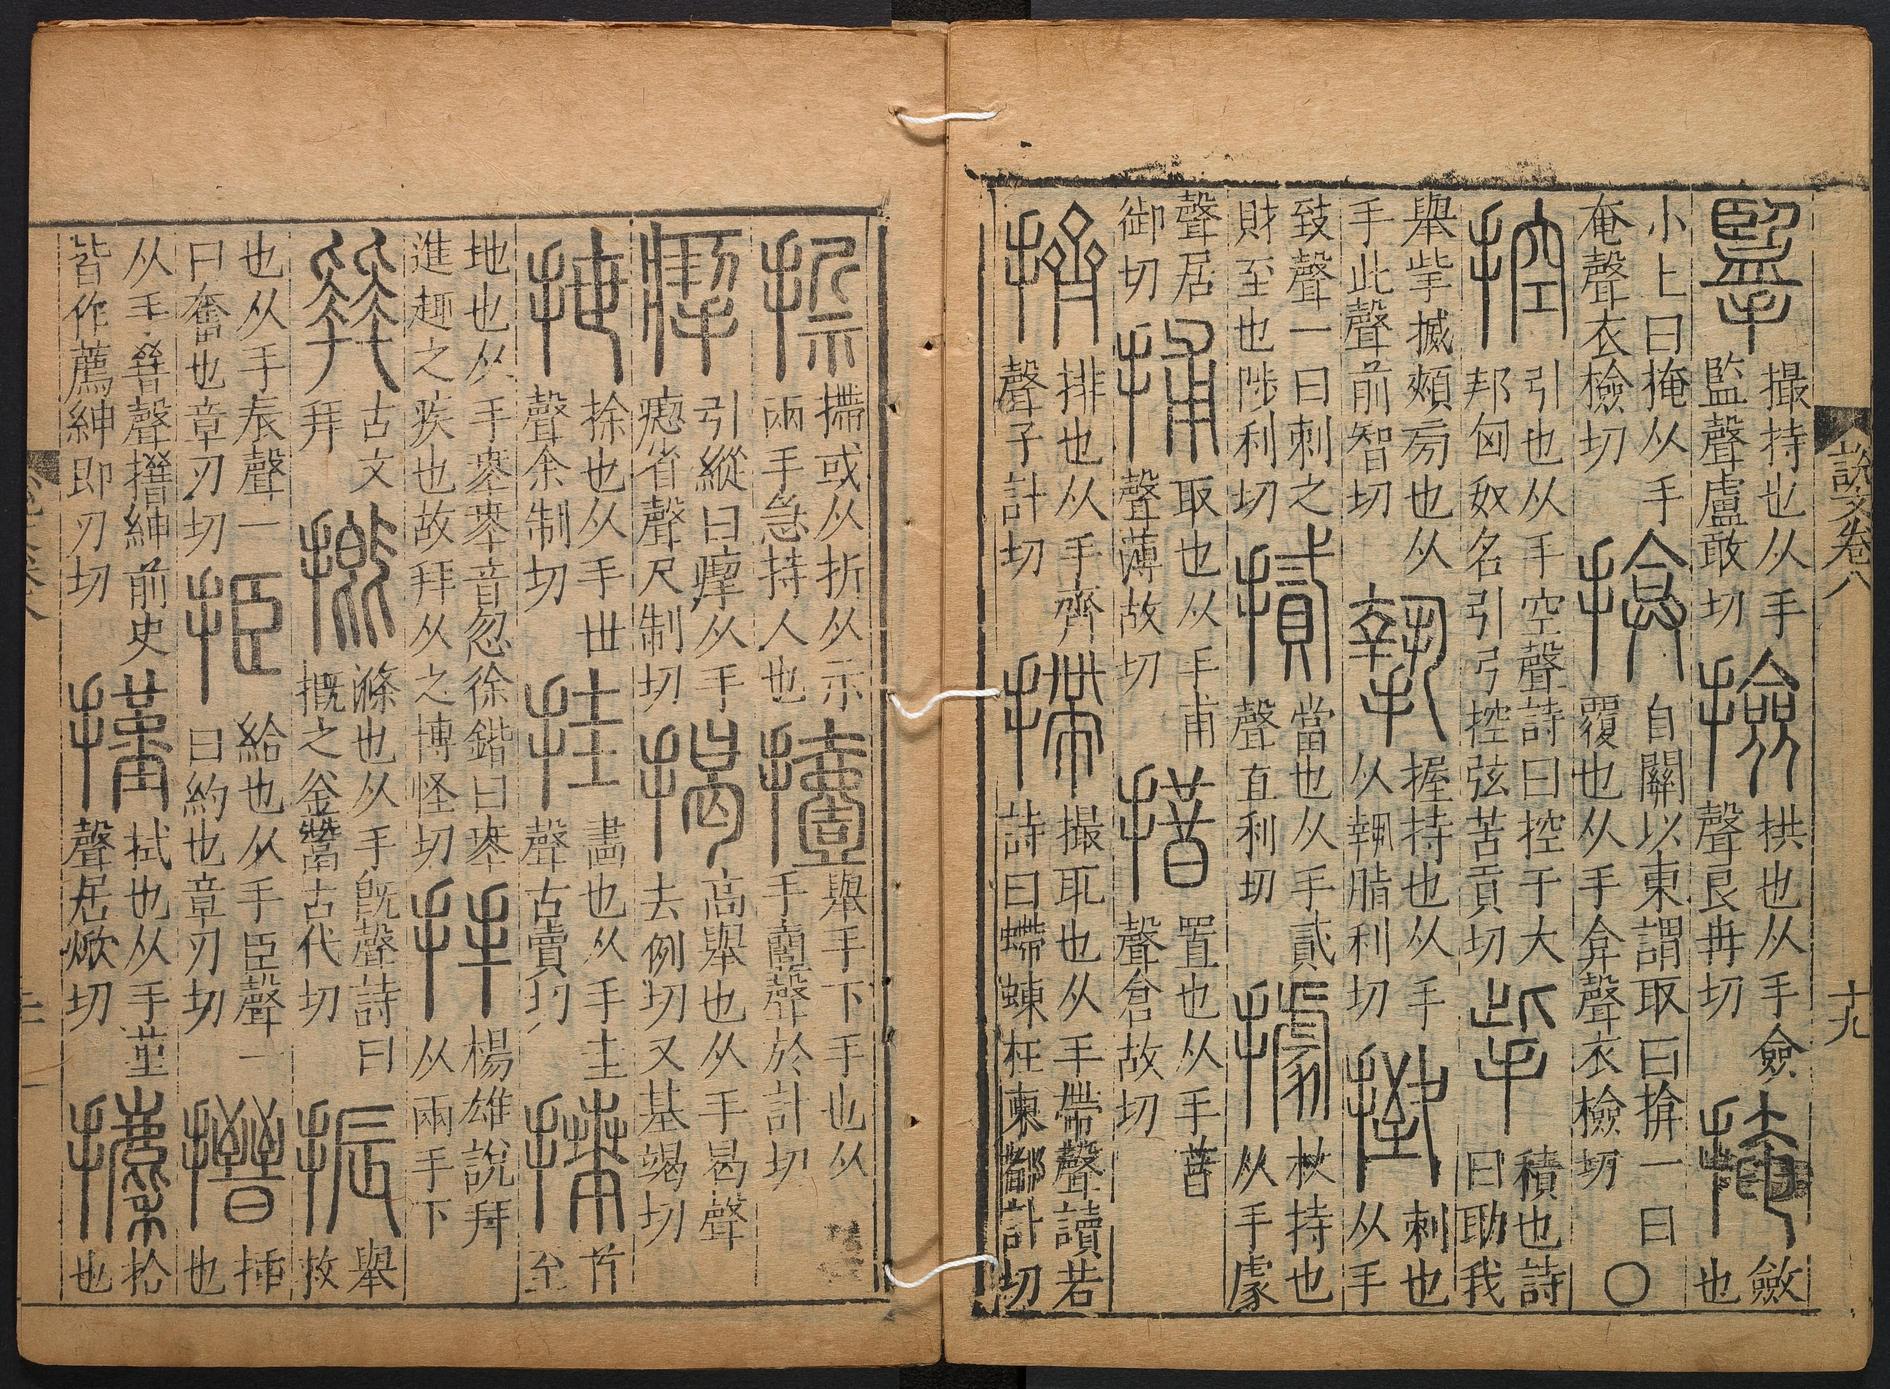 說文卷八 十九
擥撮持也从手監聲盧敢切撿拱也从手僉聲良冉切掩斂也
小上曰掩从手奄聲衣檢切揜自關以東謂取曰揜一曰覆也从手弇聲衣檢切○
控引也从手空聲詩曰控于大邦匈奴名引弓控弦苦貢切㧘積也詩曰助我
舉㧘搣頰旁也从手此聲前智切摯握持也从手从執脂利切刺也从手
致聲一曰刺之財至也陟利切當也从手貳聲直利切據杖持也从手豦
聲居御切捕取也从手甫聲薄故切措置也从手昔聲倉故切
擠排也从手齊聲子計切摕撮取也从手帶聲讀若詩曰螮蝀在東都計切
摕或从折从示兩手急持人也撎舉手下手也从手壹聲於計切
引縱曰瘛从手瘛省聲尺制切揭高舉也从手曷聲去例切又基竭切
抴捈也从手世聲余制切挂畫也从手圭聲古賣切首至
地也从手𠦪𠦪音忽徐鍇曰𠦪進趣之疾也故拜从之博怪切拜楊雄說拜从兩手下
古文拜摡滌也从手旣聲詩曰摡之釜鬵古代切振舉救
也从手辰聲一曰奮也章刃切㧢給也从手臣聲一曰約也章刃切搢插也
从手晉聲搢紳前史皆作薦紳即刃切㨷拭也从手堇聲居焮切攈拾也